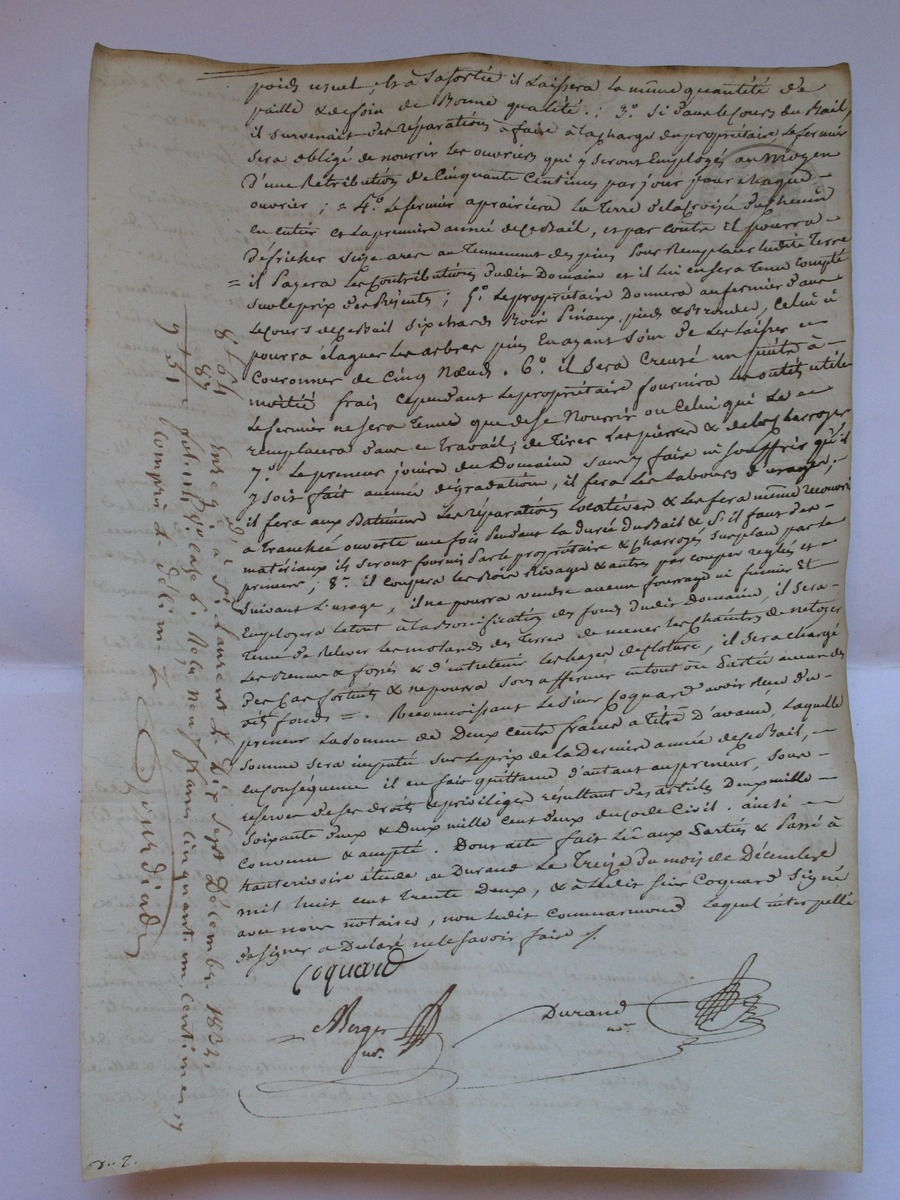 poids usuel, & à sa sortie il laissera la même quantité de
paille & de foin de bonne qualité ; 3° Si dans le cours du Bail,
il survenait des réparations à faire à la charge du propriétaire le fermier
sera obligé de nourrir les ouvriers qui y seront Employés au moyen
d'une Rétribution de Cinquante Centimes par jour pour chaque
ouvrier ; = 4° Le fermier aprairiera la Terre de la Croisée du Chemin
en entier et la première année de ce Bail, et par contre il pourra
Défricher seize ares au Tennement des pins pour Remplacer ladite Terre
= il Payera les Contributions dudit Domaine et il lui en sera Tenu compte
sur le prix des Présents ; 5° Le propriétaire Donnera au fermier dans
Le cours de ce Bail six chards Bois Pinaux, pieds & Brondes, Celui-ci
pourra élaguer les arbres pins En ayant soin de les laisser
Couronner de Cinq Nœuds. 6° il sera Creusé un puits à
moitié frais Cependant Le propriétaire fournira les outils utiles
Le fermier ne sera Tenu que de se Nourrir ou Celui qui Le
remplacera dans ce Travail, de Tirer Les pierres & de les Charroyer
7° Le preneur jouira du Domaine sans y faire ni souffrir qu'il
y soit fait aucune dégradation, il fera les Labours d'usages ;
il fera aux Batiments Les réparations Locatives & les fera même recouvrir
à Tranchée ouverte une fois Pendant la durée du Bail & S'il faut des
matériaux ils seront fournis Par le propriétaire & Charroyés sur place par le
preneur ; 8° il coupera les Bois Rivages & autres par couper réglés et
suivant L'usage, il ne pourra vendre aucun fourrage ni fumier Et
Employera le tout à la Bonification des fonds dudit Domaine, il sera
Tenu de Relever les molards des Terres de mener les Chaintres de netoyer
Les serves & fossés & d'entretenir les hayes de cloture, il sera chargé
des Cas fortuits & ne pourra sous affermer en tout ou Partie aucun des
dits fonds =. Reconnoissant Le Sieur Coquard avoir reçu du
preneur La somme de Deux cents francs à Titre D'avance, Laquelle
somme sera imputée sur Le prix de la Dernière année de ce Bail,
En conséquence il en fait quittance d'autant au preneur, sous
reserves de ses droits & priviliges résultant des articles Deux mille
Soixante deux & Deux mille Cent deux du Code Civil. ainsi
Convenu & accepté. Dont acte fait Lû aux Parties & Passé à
hauterivoire étude de Durand Le Treize du mois de Décembre
mil huit cent Trente Deux, & a Ledit Sieur Coquard signé
avec nous notaires, non Ledit Commarmond Lequel interpellé
de signer a Declaré ne le savoir faire ./.
Coquard
Berger
no.
Durand
no.
Enregé à St. Laurent le dix sept Décembre 1832,
fol. Vo case 6. Reçu neuf francs cinquante un centimes,
compris le décime
8 64 1/2
87
9 51